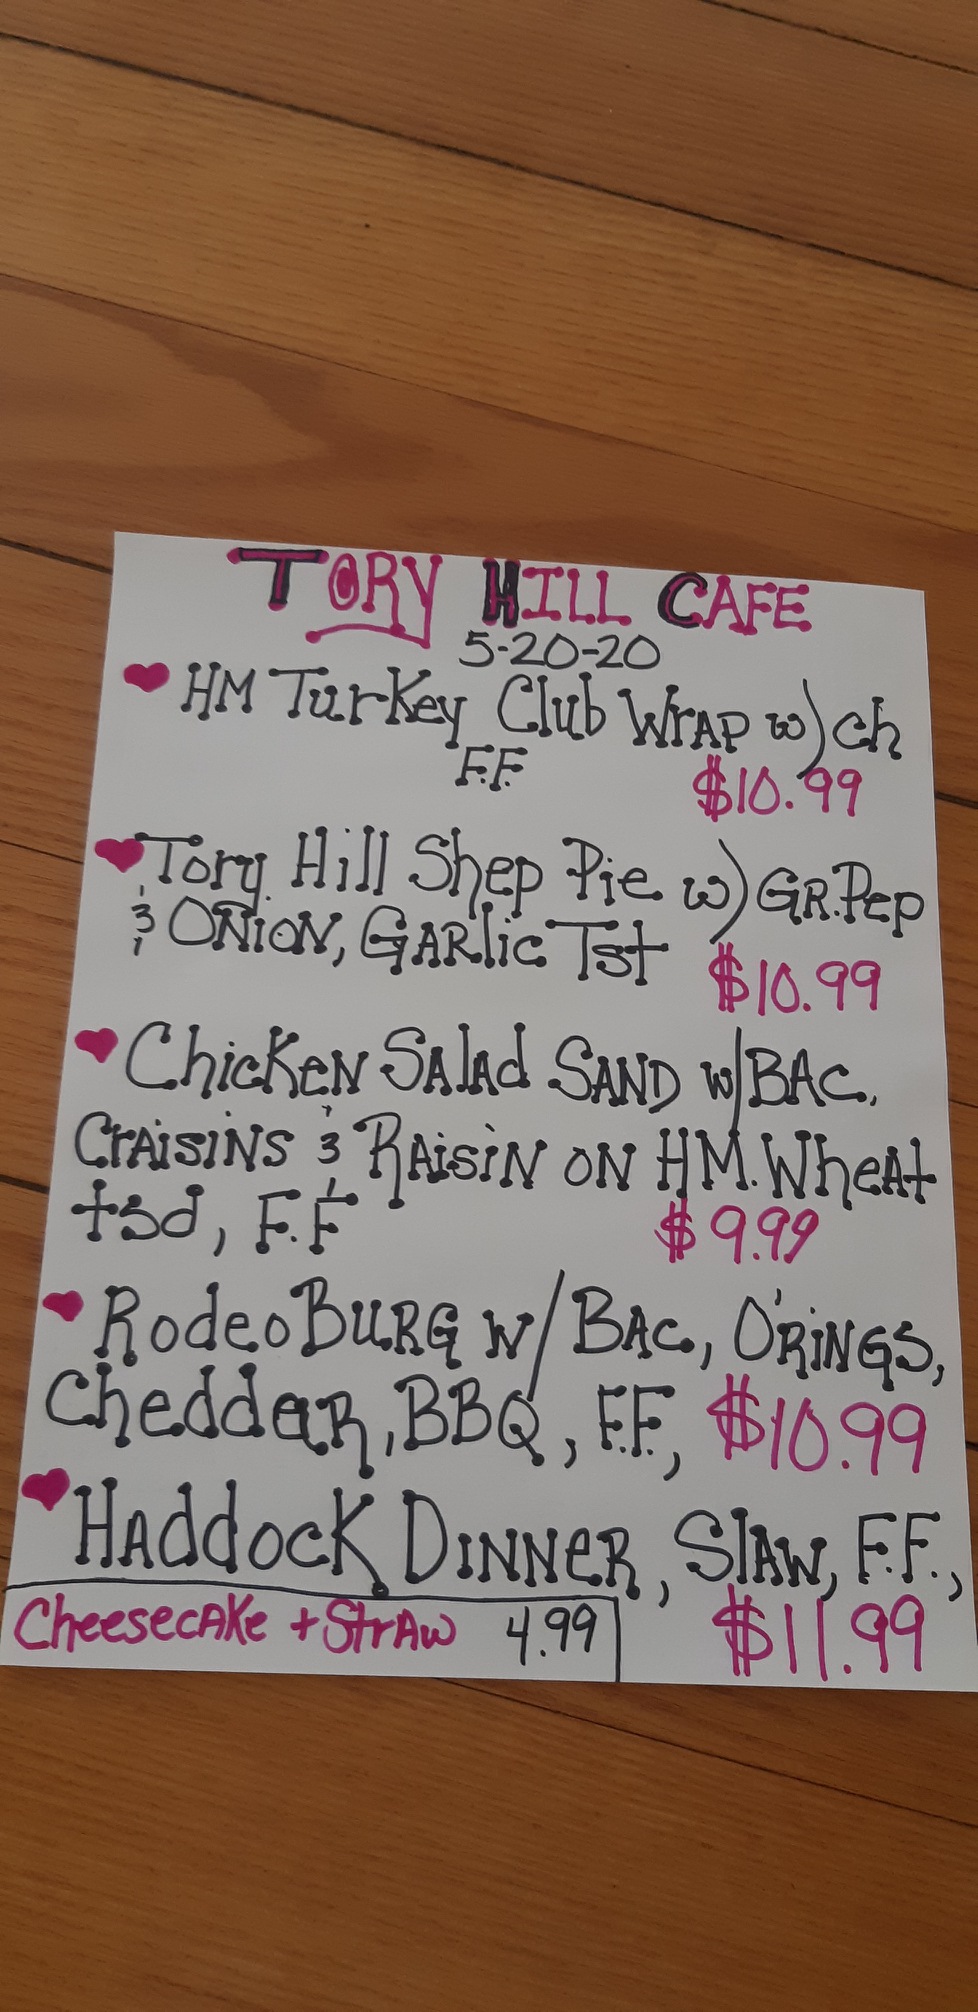 TORY HILL CAFE
5-20-20
HM Turkey Club Wrap w/ ch
F.F. $10.99
Tory Hill Shep Pie w/ GR. Pep
& ONION, GARLIC Tst $10.99
Chicken Salad SAND w/ BAC,
CRAISINS & RAISIN ON HM. WheAt
tsd, F.F $9.99
Rodeo BURG w/ BAC, O'RINGS,
Cheddar, BBQ, F.F., $10.99
HADDOCK DINNER, SLAW, F.F.,
CheesecAKe + StrAw 4.99 $11.99